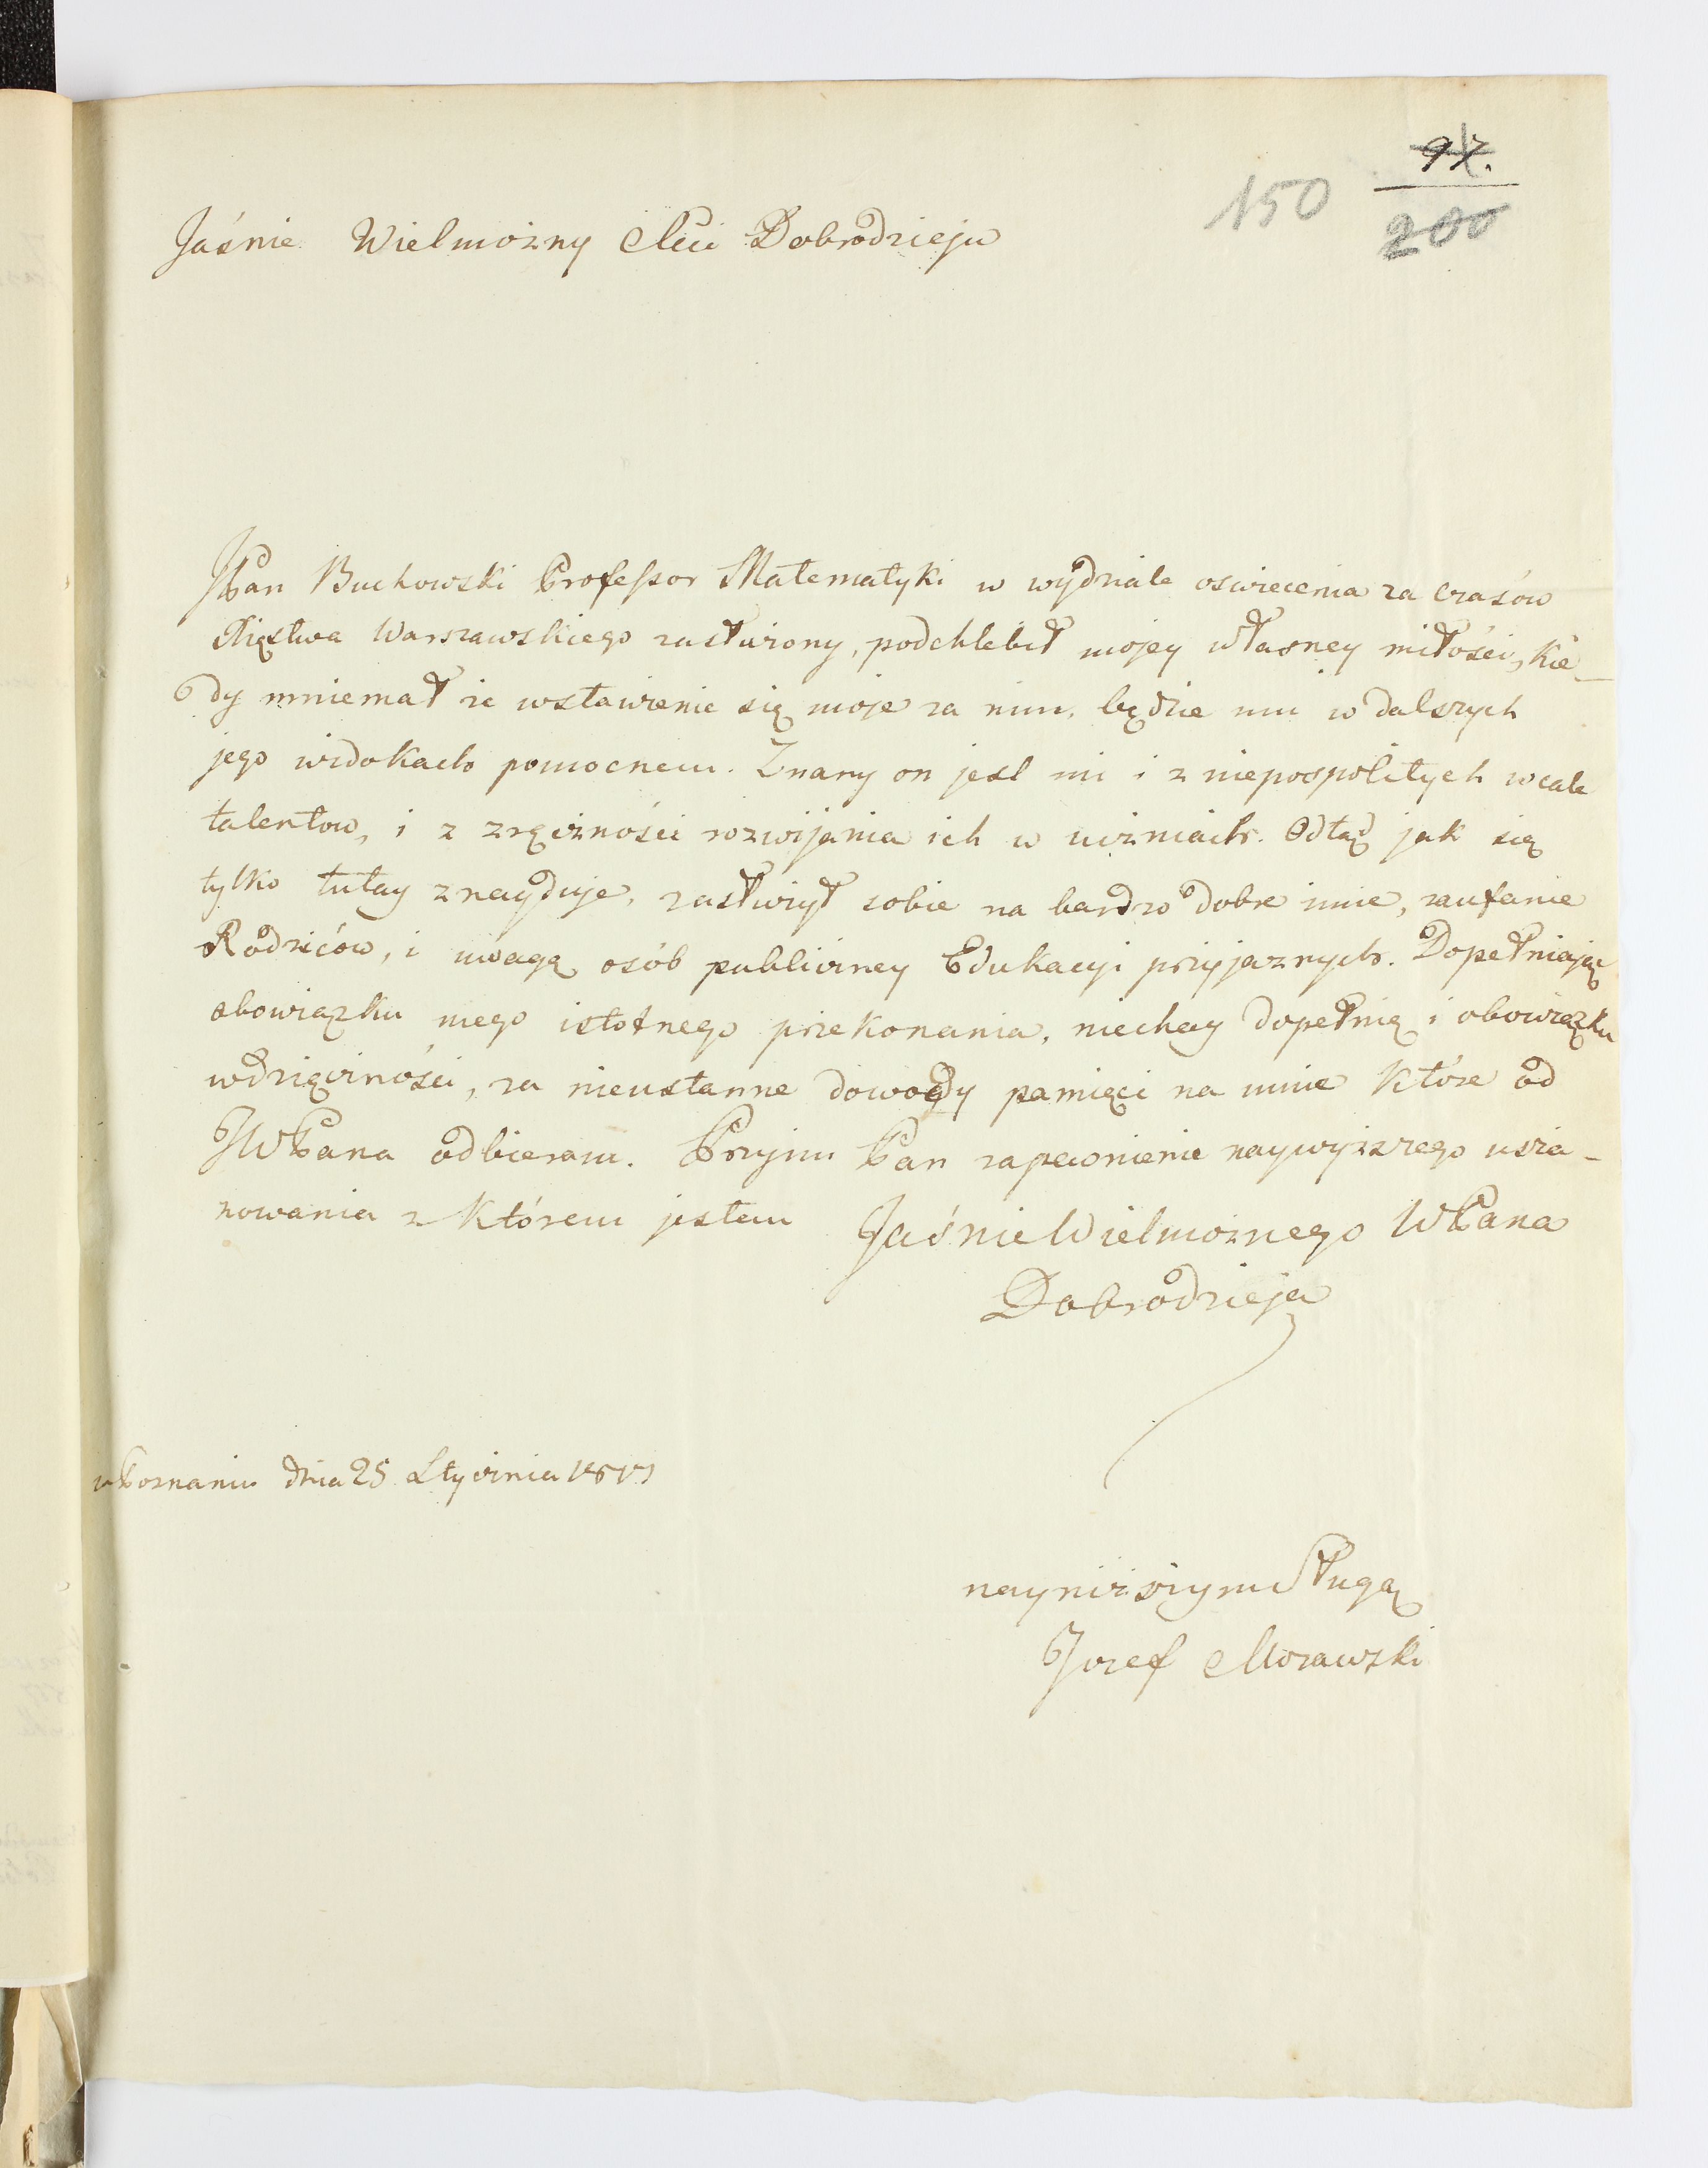 97.
150
200
Jaśnie Wielmożny Mci Dobrodzieju
JPan Buchowski Professor Matematyki w wydziale oswiecenia za czasów
Xięstwa Warszawskiego zasłużony, podchlebił mojey własney miłości, kie_
dy mniemał że wstawienie się moje za nim, będzie mu w dalszych
jego widokach pomocnem. Znany on jest mi i z niepospolitych wcale
talentow, i z zręczności rozwijania ich w uczniach. Odtąd jak się
tylko tutay znayduje, zasłużył sobie na bardzo dobre imie, zaufanie
Rodziców, i uwagę osób publiczney Edukacyi przyjaznych. Dopełniając
obowiązku mego istotnego przekonania, niechay dopełnię i obowiązku
wdzięczności, za nieustanne dowody pamięci na mnie które od
JWPana odbieram. Przyjm Pan zapewnienie naywyższego usza_
nowania z którem jestem Jaśnie Wielmożnego WPana
Dobrodzieja
w Poznaniu dnia 25 Stycznia
nayniższym Sługą
Jozef Morawski